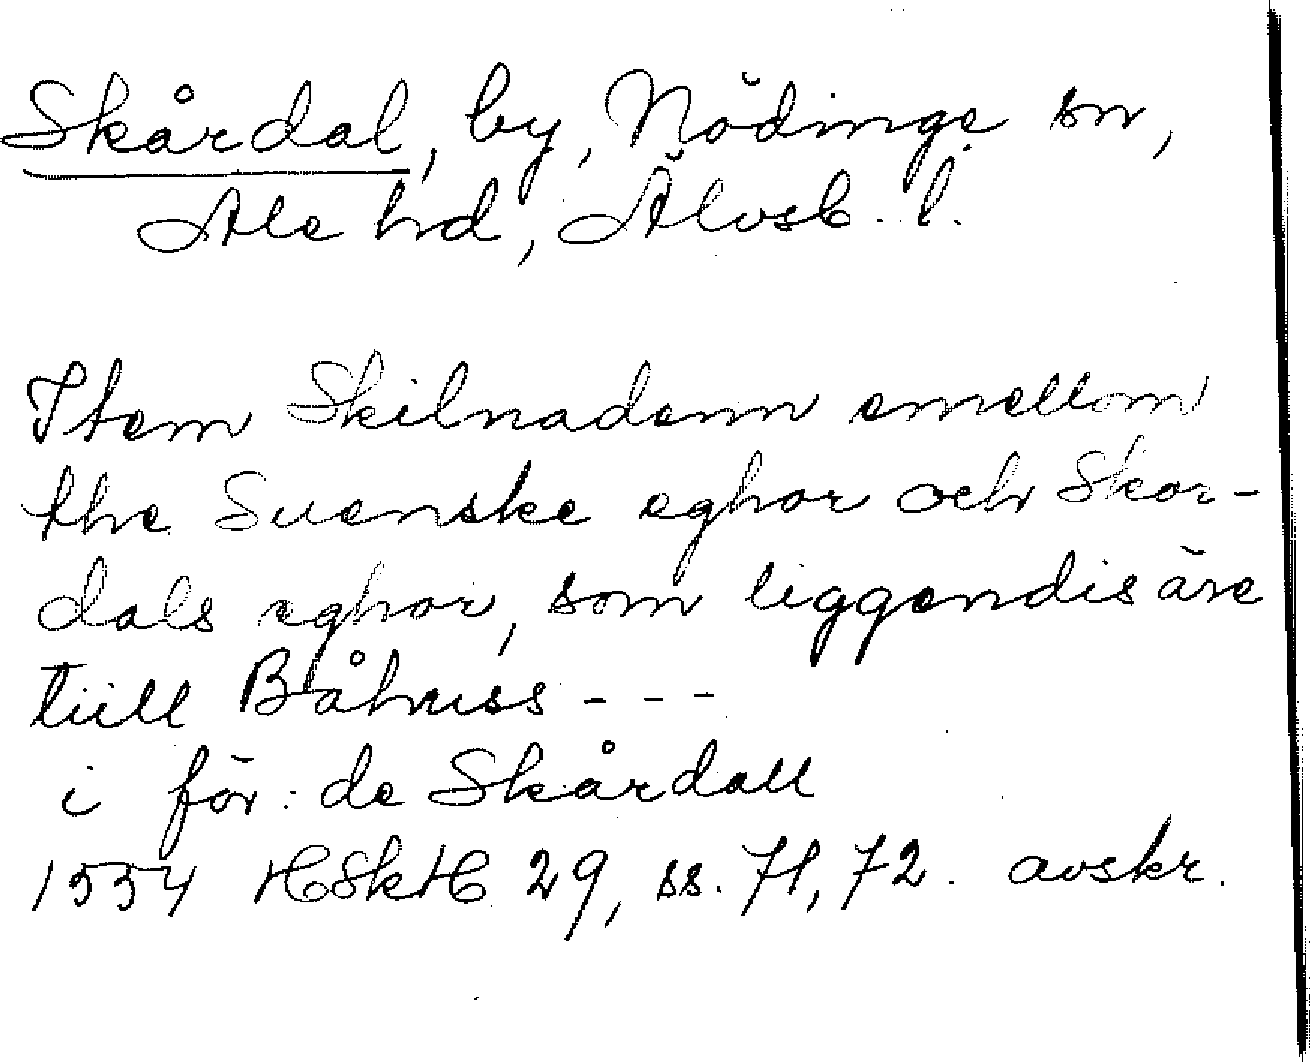 Skårdal, by, Nödinge sn,
Ale hd, Älvsb. l.
Item Skilnadenn emellom
the Suenske eghor och Skor-
dals eghor, som liggendis äre
tiill Båhuss - - -
i för: de Skårdall
1554 HSkH 29, ss. 71, 72. avskr.